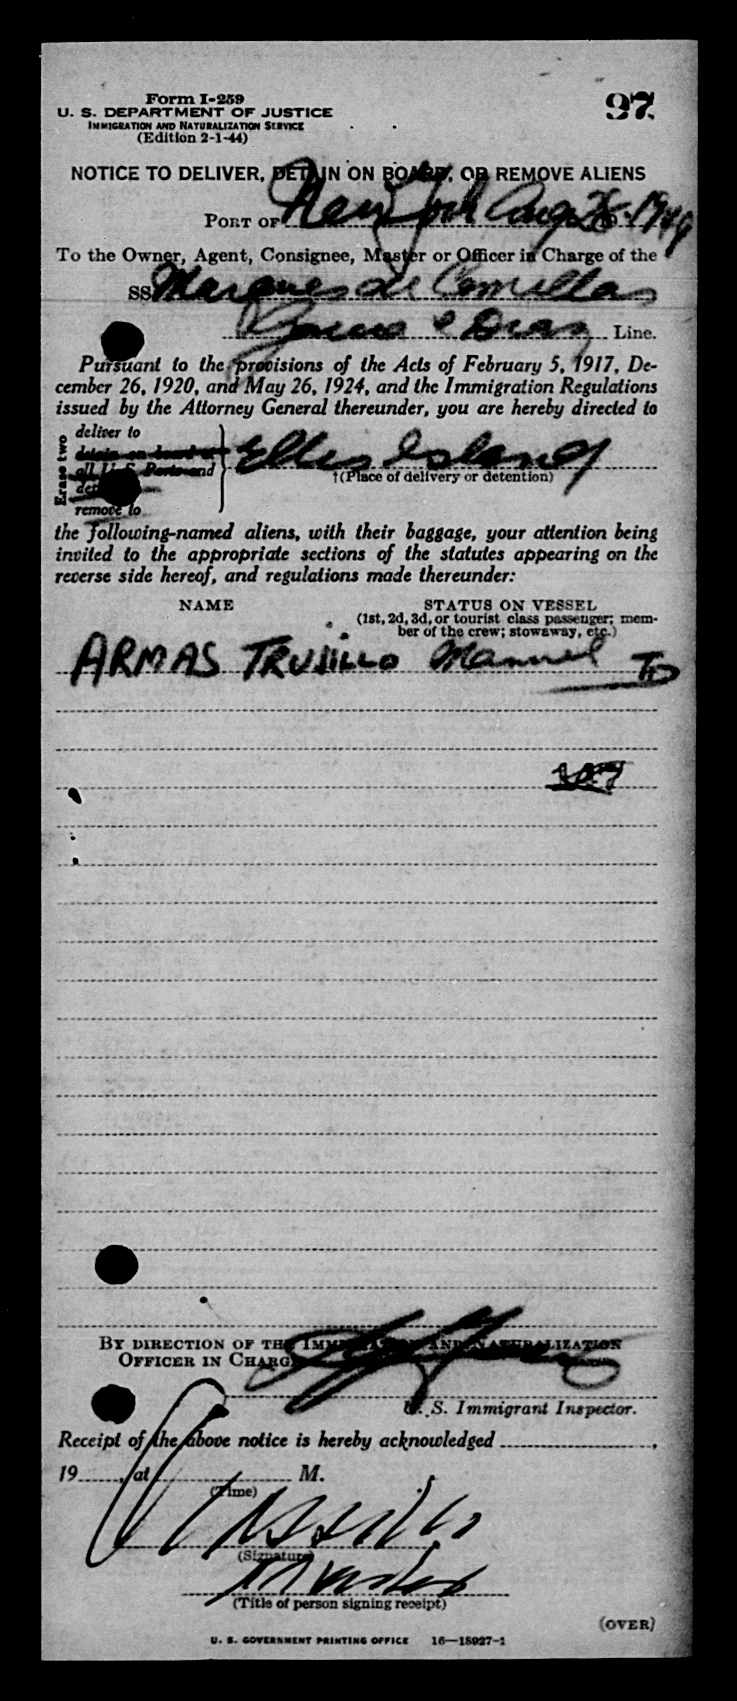 Form I-259
97
U. S. DEPARTMENT OF JUSTICE
IMMIGRATION AND NATURALIZATION SERVICE
(Edition 2-1-44)
NOTICE TO DELIVER, DETAIN ON BOARD, OR REMOVE ALIENS
PORT OF New York Aug 26 1949
To the Owner, Agent, Consignee, Master or Officer in Charge of the
SS Marques de Comillas
Garcia & Diaz Line.
Pursuant to the provisions of the Acts of February 5, 1917, De-
cember 26, 1920, and May 26, 1924, and the Immigration Regulations
issued by the Attorney General thereunder, you are hereby directed to
Erase two
deliver to
detain on board at
all U.S. Ports and
remove to
Ellis Island
†(Place of delivery or detention)
the following-named aliens, with their baggage, your attention being
invited to the appropriate sections of the statutes appearing on the
reverse side hereof, and regulations made thereunder:
NAME
STATUS ON VESSEL
(1st, 2d, 3d, or tourist class passenger; mem-
ber of the crew; stowaway, etc.)
ARMAS TRUJILLO Manuel TD
107
BY DIRECTION OF THE IMMIGRATION AND NATURALIZATION
OFFICER IN CHARGE
U. S. Immigrant Inspector.
Receipt of the above notice is hereby acknowledged
19 , at M.
(Time)
(Signature)
Master
(Title of person signing receipt)
(OVER)
U. S. GOVERNMENT PRINTING OFFICE 16—18927-1